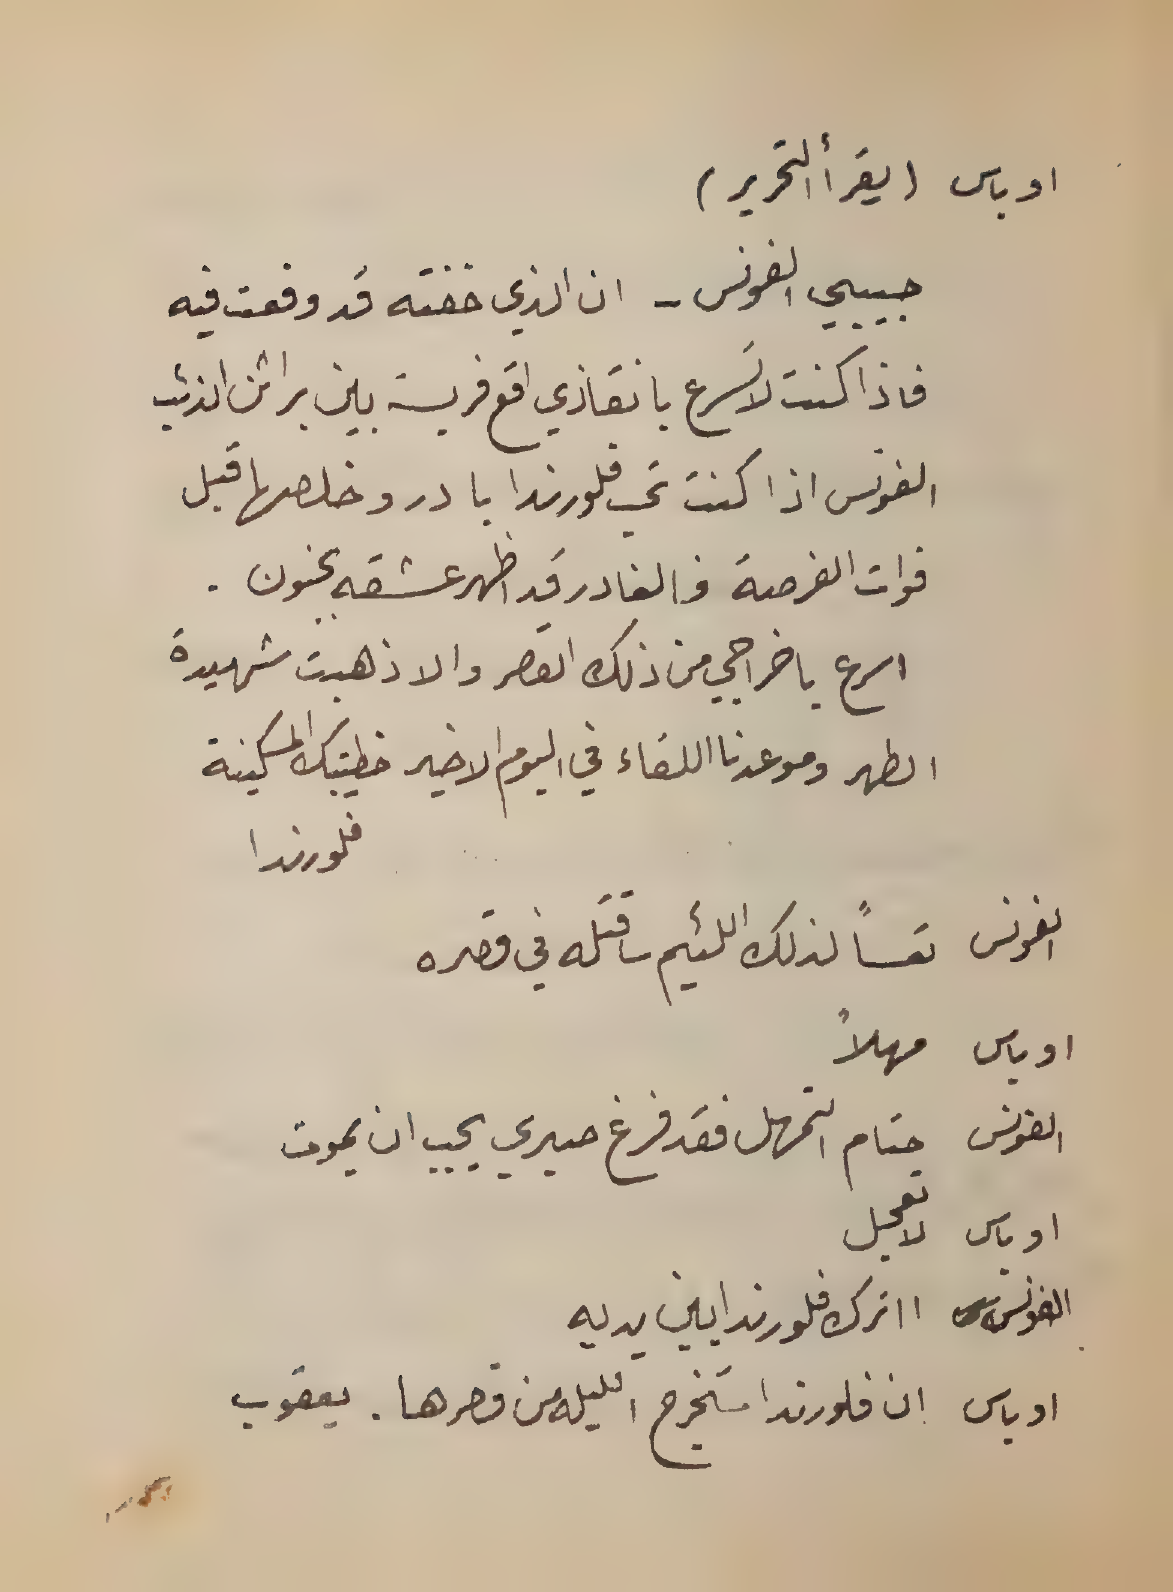 اوباس (يقرأ التحرير)
حبيبي الفونس - ان الذي خفته قد وقعت فيه
فاذا كنت لا تسرع بانقاذي اقع فريسة بين براثن الذئب
الفونس اذا كنت تحب فلورندا بادر وخلصها قبل
فوات الفرصة فالغادر قد اظهر عشقه بجنون .
اسرع باخراجي من ذلك القصر والا ذهبت شهيدة
الطهر وموعدنا اللقاء في اليوم الاخير خطيبتك المسكينة
فلورندا
الفونس تعساً لذلك اللئيم ساقتله في قصره
اوباس مهلاً
الفونس حتام التمهل فقد فرغ صبري يجب ان يموت
اوباس لا تعجل
الفونس ااترك فلورندا بين يديه
اوباس ان فلورندا ستخرج الليلة من قصرها . يعقوب